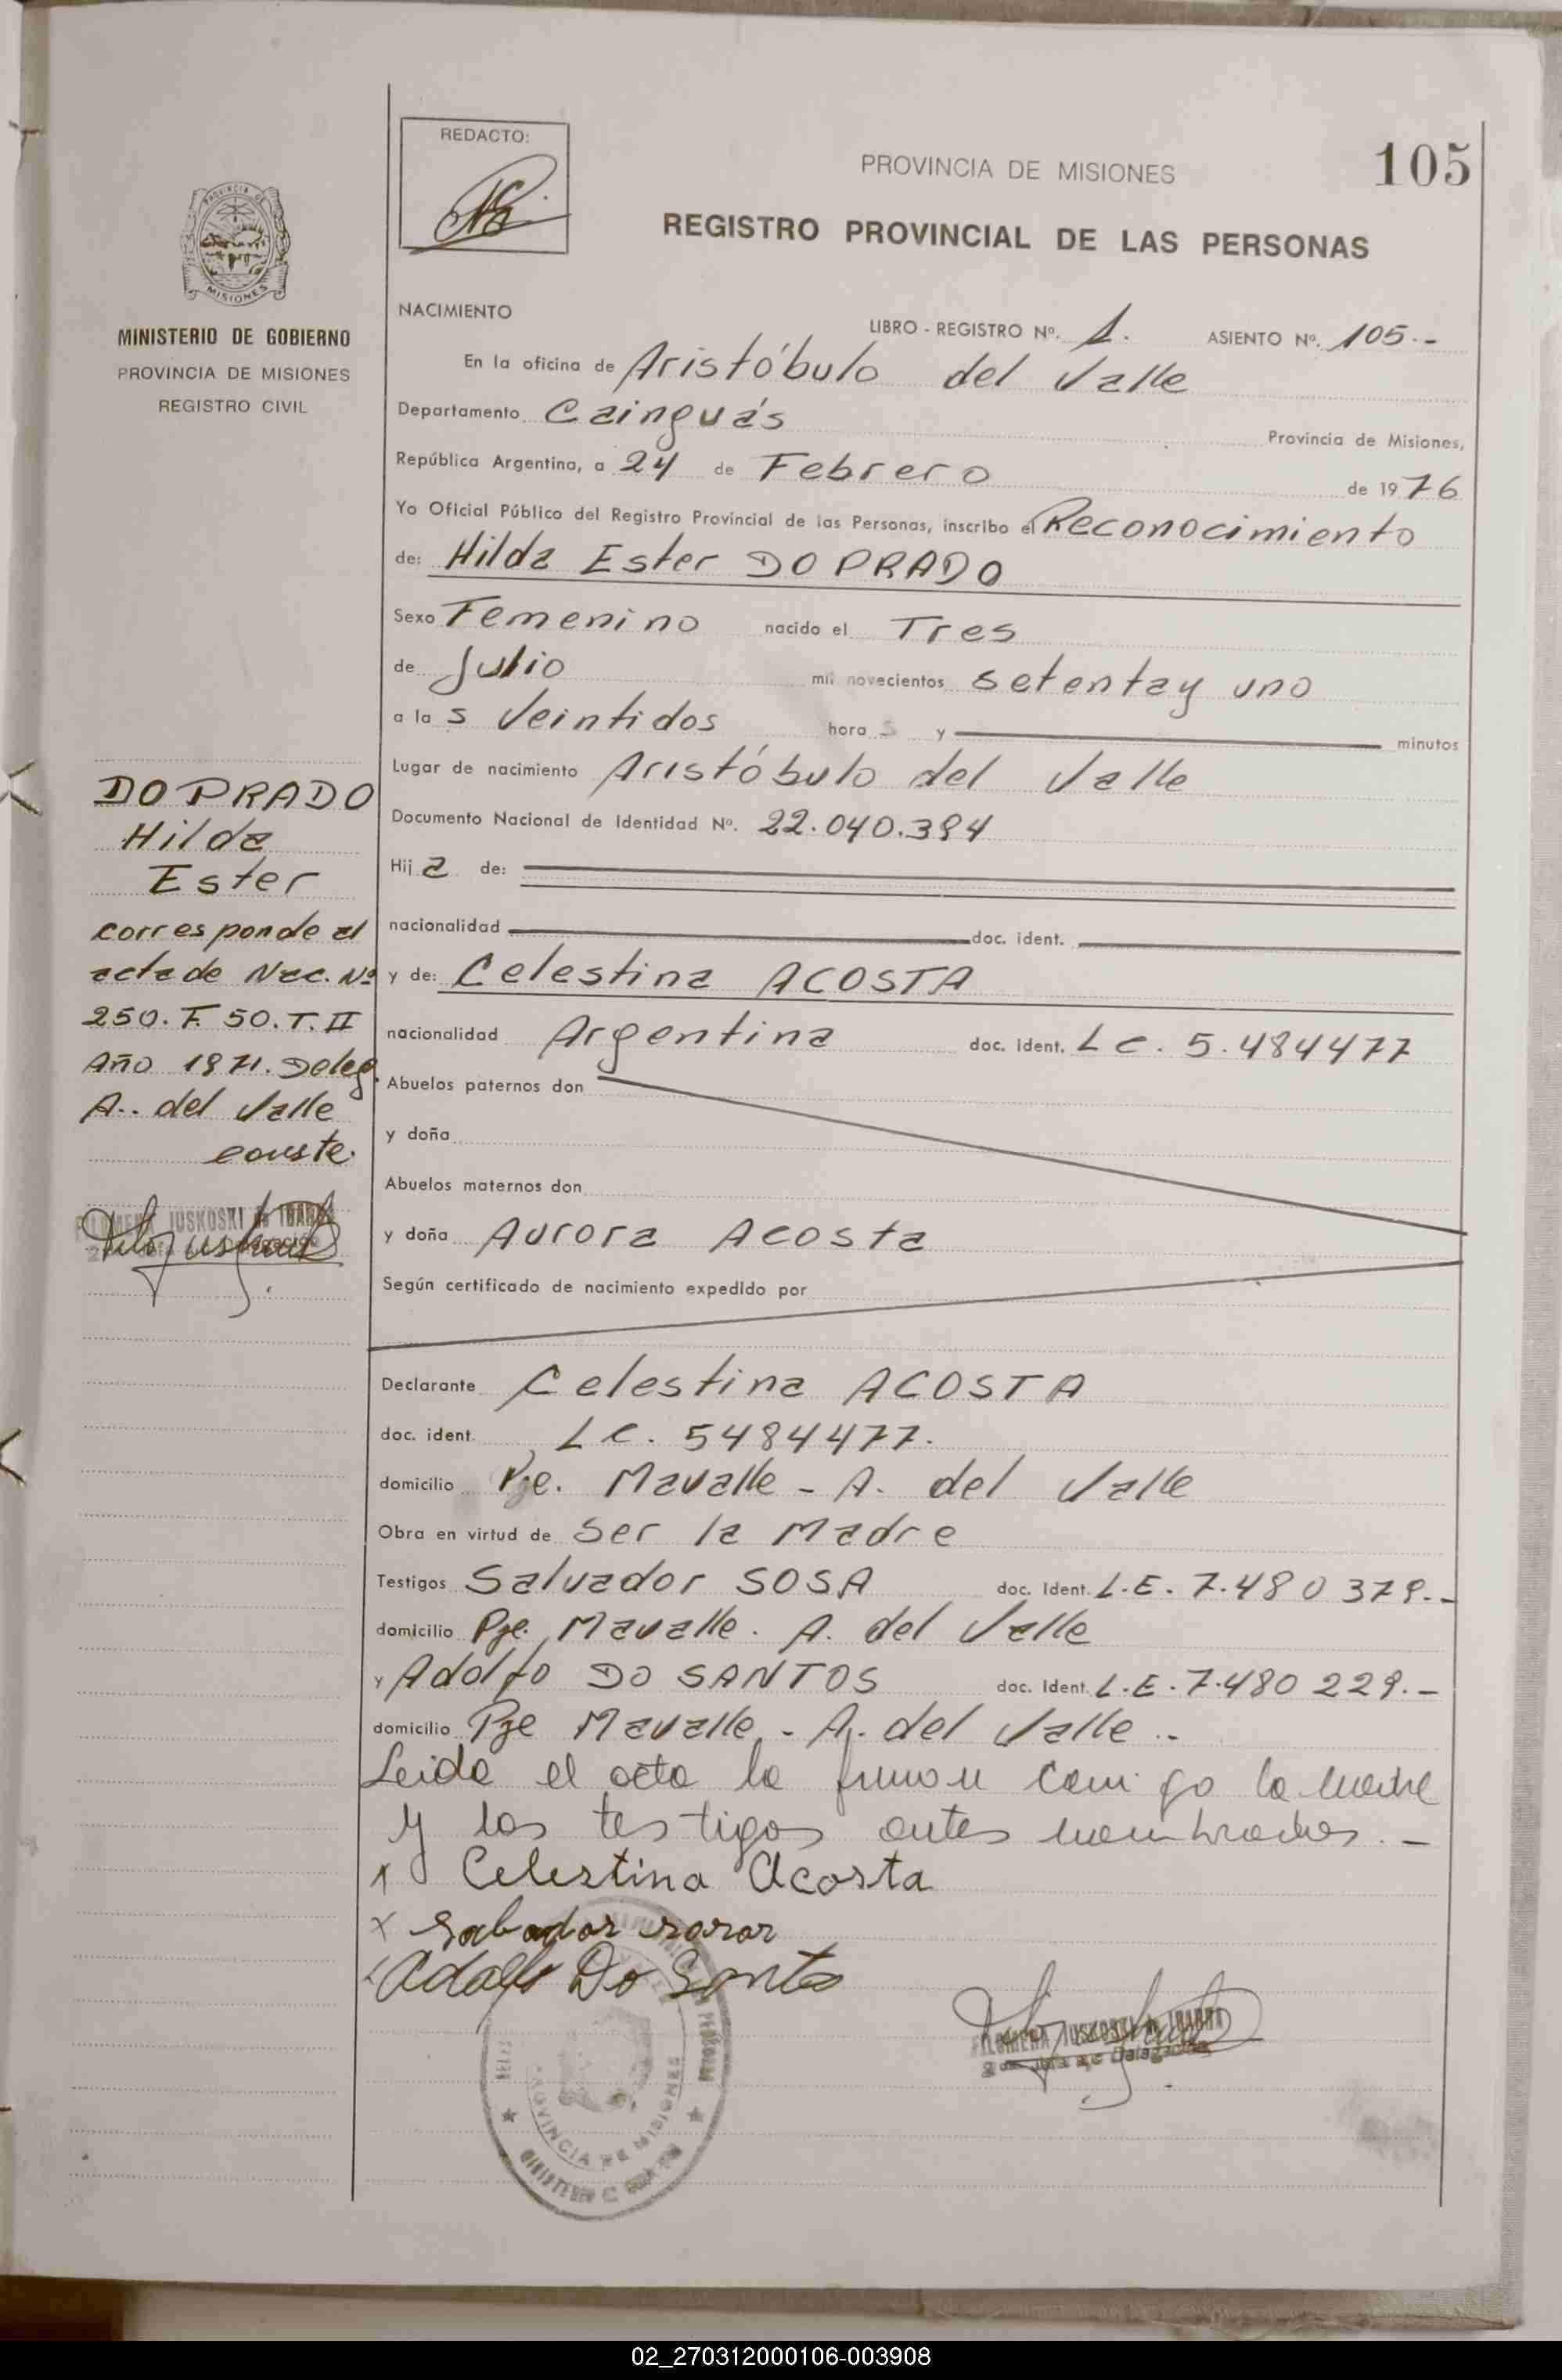 105
REDACTO:
PROVINCIA DE MISIONES
REGISTRO PROVINCIAL DE LAS PERSONAS
PROVINCIA DE
MISIONES
MINISTERIO DE GOBIERNO
PROVINCIA DE MISIONES
REGISTRO CIVIL
NACIMIENTO
LIBRO - REGISTRO Nº. 1. ASIENTO Nº. 105.-
En la oficina de Aristóbulo del Valle
Departamento Cainguás Provincia de Misiones,
República Argentina, a 24 de Febrero de 1976
Yo Oficial Público del Registro Provincial de las Personas, inscribo el Reconocimiento
de: Hilda Ester DO PRADO
Sexo Femenino nacido el Tres
de Julio mil novecientos setentay uno
a las Veintidos horas y minutos
Lugar de nacimiento Aristóbulo del Valle
Documento Nacional de Identidad Nº. 22.040.394
Hija de:
nacionalidad doc. ident.
y de: Celestina ACOSTA
nacionalidad Argentina doc. ident. L C. 5.484477
Abuelos paternos don
y doña
Abuelos maternos don
y doña Aurora Acosta
Según certificado de nacimiento expedido por
Declarante Celestina ACOSTA
doc. ident. L C. 5484477.
domicilio Pje. Mavalle - A. del Valle
Obra en virtud de Ser la Madre
Testigos Salvador SOSA doc. Ident. L.E. 7.480 379.-
domicilio Pje. Mavalle. A. del Valle
y Adolfo DO SANTOS doc. Ident. L.E. 7.480 229.-
domicilio Pje Mavalle - A. del Valle.-
Leida el acta la firman comigo la madre
y los testigos antes nombrados.-
x Celestina Acosta
x Salvador sosar
Adolfo Do Santo
DO PRADO
Hilda
Ester
corresponde al
acta de Nac. Nº
250. F. 50. T. II
Año 1971. Deleg.
A.. del Valle
conste.
FILOMENA IUSKOSKI de IBARRA
FILOMENA IUSKOSKI de IBARRA
Jefa de Delegación
PROVINCIA DE MISIONES
02_270312000106-003908